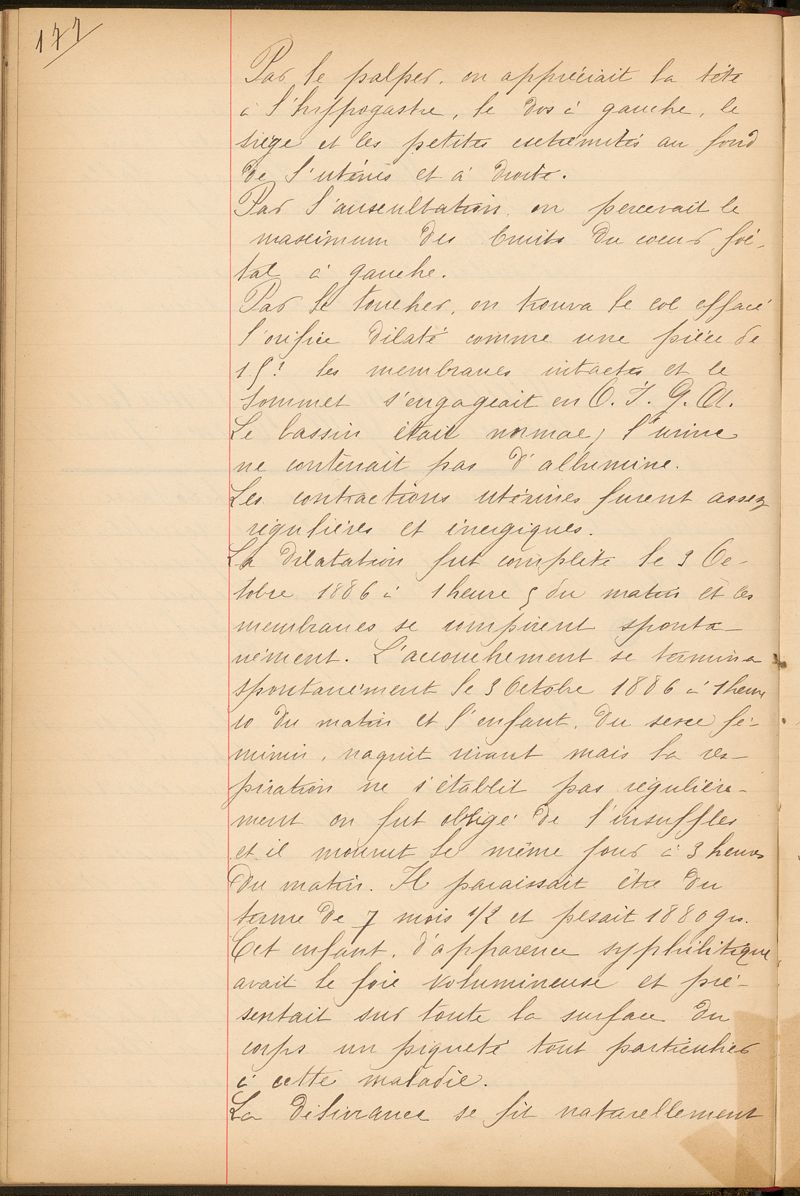 177
Par le palper, on appréciait la tête
à l'hypogastre, le dos à gauche, le
siège et les petites extrémités au fond
de l'utérus et à droite.
Par l'auscultation, on percevait le
maximum des bruits du cœur foe-
tal à gauche.
Par le toucher, on trouva le col effacé
l'orifice dilaté comme une pièce de
1f! les membranes intactes et le
sommet s'engageait en O. I. G. A.
Le bassin était normal, l'urine
ne contenait pas d'albumine.
Les contractions utérines furent assez
régulières et énergiques.
La dilatation fut complète le 3 Oc-
tobre 1886 à 1 heure 5 du matin et les
membranes se rompirent sponta-
nément. L'accouchement se termina
spontanément le 3 Octobre 1886 à 1 heure
10 du matin et l'enfant, du sexe fé-
minin, naquit vivant mais la res-
piration ne s'établit pas régulière-
ment on fut obligé de l'insuffler
et il mourut le même jour à 3 heures
du matin. Il paraissait être du
terme de 7 mois 1/2 et pesait 1880 grs.
Cet enfant, d'apparence syphilitique
avait le foie volumineuse et pré-
sentait sur toute la surface du
corps un piqueté tout particulier
à cette maladie.
La délivrance se fit naturellement